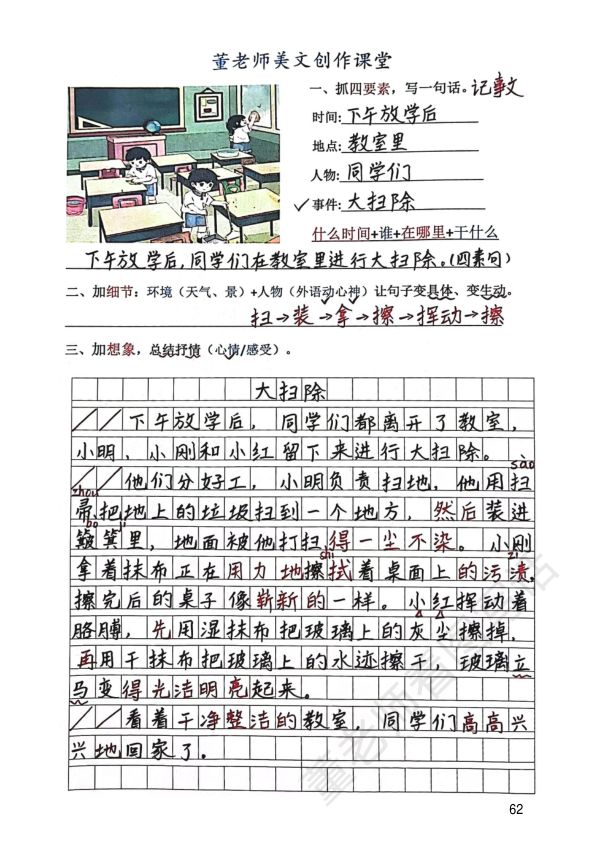 董老师美文创作课堂
一、抓四要素，写一句话。记事文
时间：下午放学后
地点：教室里
人物：同学们
✓事件：大扫除
什么时间+谁+在哪里+干什么
下午放学后，同学们在教室里进行大扫除。（四素句）
二、加细节：环境（天气、景）+人物（外语动心神）让句子变具体、变生动。
扫→装→拿→擦→挥动→擦
三、加想象，总结抒情（心情/感受）。
大扫除
下午放学后，同学们都离开了教室，
小明、小刚和小红留下来进行大扫除。
sào
他们分好工，小明负责扫地，他用扫
zhou
帚把地上的垃圾扫到一个地方，然后装进
bò ji
簸箕里，地面被他打扫得一尘不染。小刚
shì zì
拿着抹布正在用力地擦拭着桌面上的污渍，
擦完后的桌子像崭新的一样。小红挥动着
胳膊，先用湿抹布把玻璃上的灰尘擦掉，
再用干抹布把玻璃上的水迹擦干，玻璃立
马变得光洁明亮起来。
看着干净整洁的教室，同学们高高兴
兴地回家了。
62